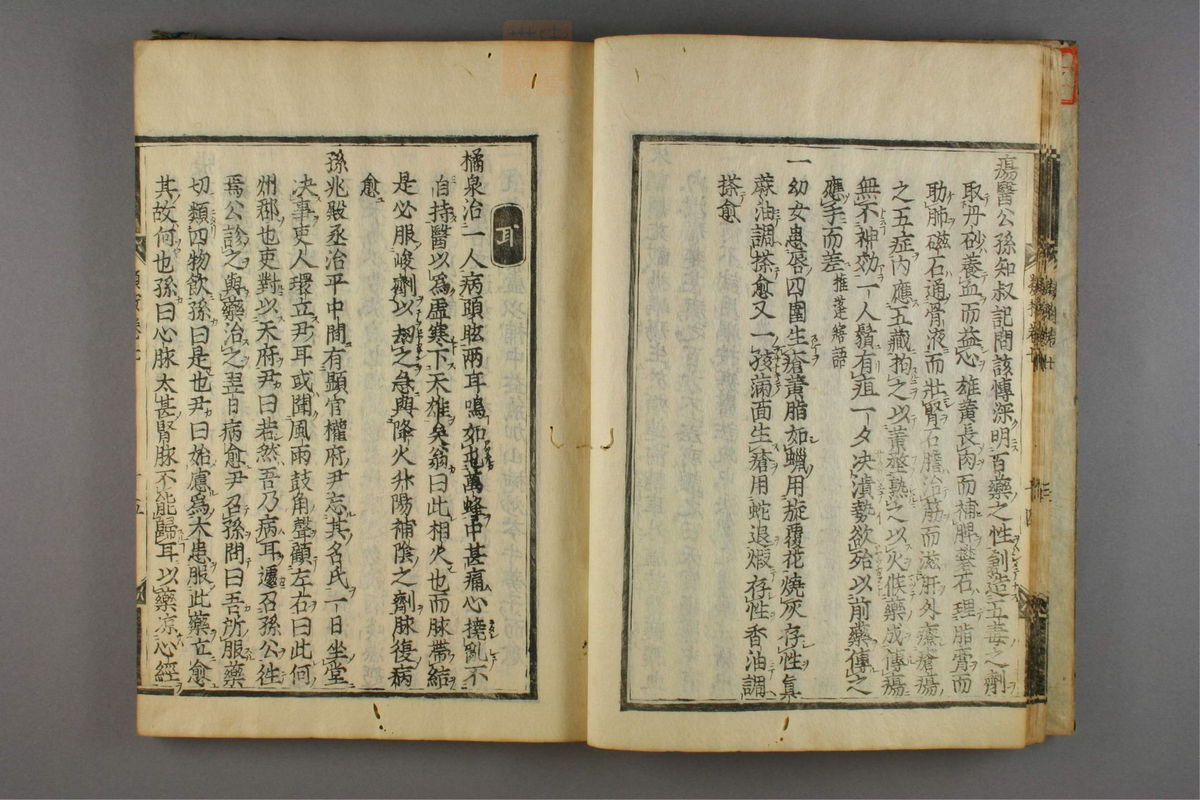 瘍醫公孫知叔記問該博深明百藥之性創造五毒之劑
取丹砂養血而益心雄黃長肉而補脾礬石理脂膏而
助肺磁石通骨液而壯腎石膽治筋而滋肝外療瘡瘍
之五症內應五藏拘之以黃埊熟之以火候藥成傅瘍
無不神効一人鬚有疽一夕决潰勢欲殆以前藥傅之
應手而差推蓬寤語
一幼女患唇四圍生瘡黃脂如蠟用旋覆花燒灰存性真
蔴油調搽愈又一孩滿面生瘡用蛇退煆存性香油調
搽愈
耳
橘泉治一人病頭眩兩耳鳴如屯萬蜂中甚痛心撓亂不
自持醫以爲虛寒下天雄矣翁曰此相火也而脉帶結
是必服峻劑以刼之急與降火升陽補陰之劑脉復病
愈
孫兆殿丞治平中間有顯官權府尹忘其名氏一日坐堂
决事吏人環立尹耳或聞風雨鼓角聲顧左右曰此何
州郡也吏對以天府尹曰若然吾乃病耳遽召孫公徃
焉公診之與藥治之翌日病愈尹召孫問曰吾所服藥
切類四物飲孫曰是也尹曰始慮爲大患服此藥立愈
其故何也孫曰心脉太甚腎脉不能歸耳以藥凉心經